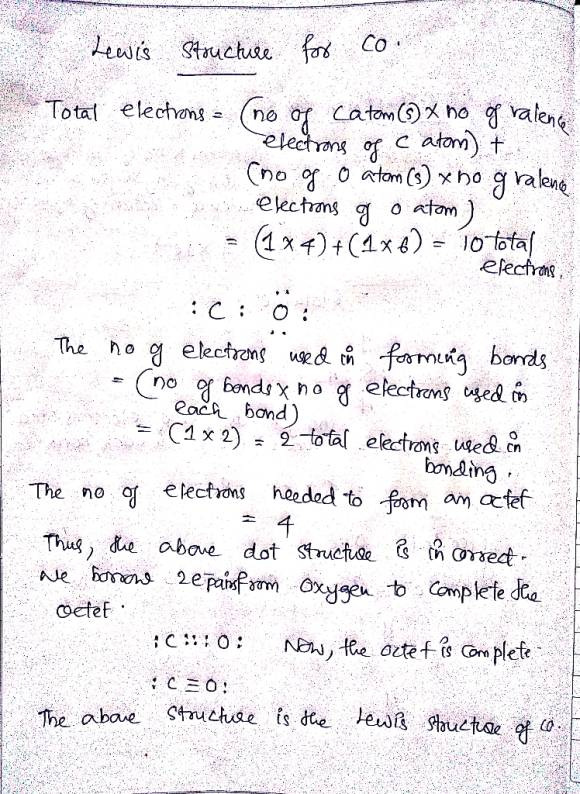 Lewis Structure for CO.
Total electrons = (no of C atom(s) x no of valence
electrons of C atom) +
(no of O atom(s) x no of valence
electrons of O atom)
= (1 x 4) + (1 x 6) = 10 total
electrons.
:C : Ö̤ :
The no of electrons used in forming bonds
= (no of bonds x no of electrons used in
each bond)
= (1 x 2) = 2 total electrons used in
bonding.
The no of electrons needed to form an octet
= 4
Thus, the above dot structure is in correct.
We borrow 2e pairs from Oxygen to complete the
octet.
:C:::O: Now, the octet is complete.
:C≡O:
The above structure is the Lewis structure of CO.